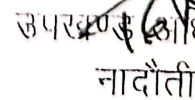 उपखण्ड
नादौती